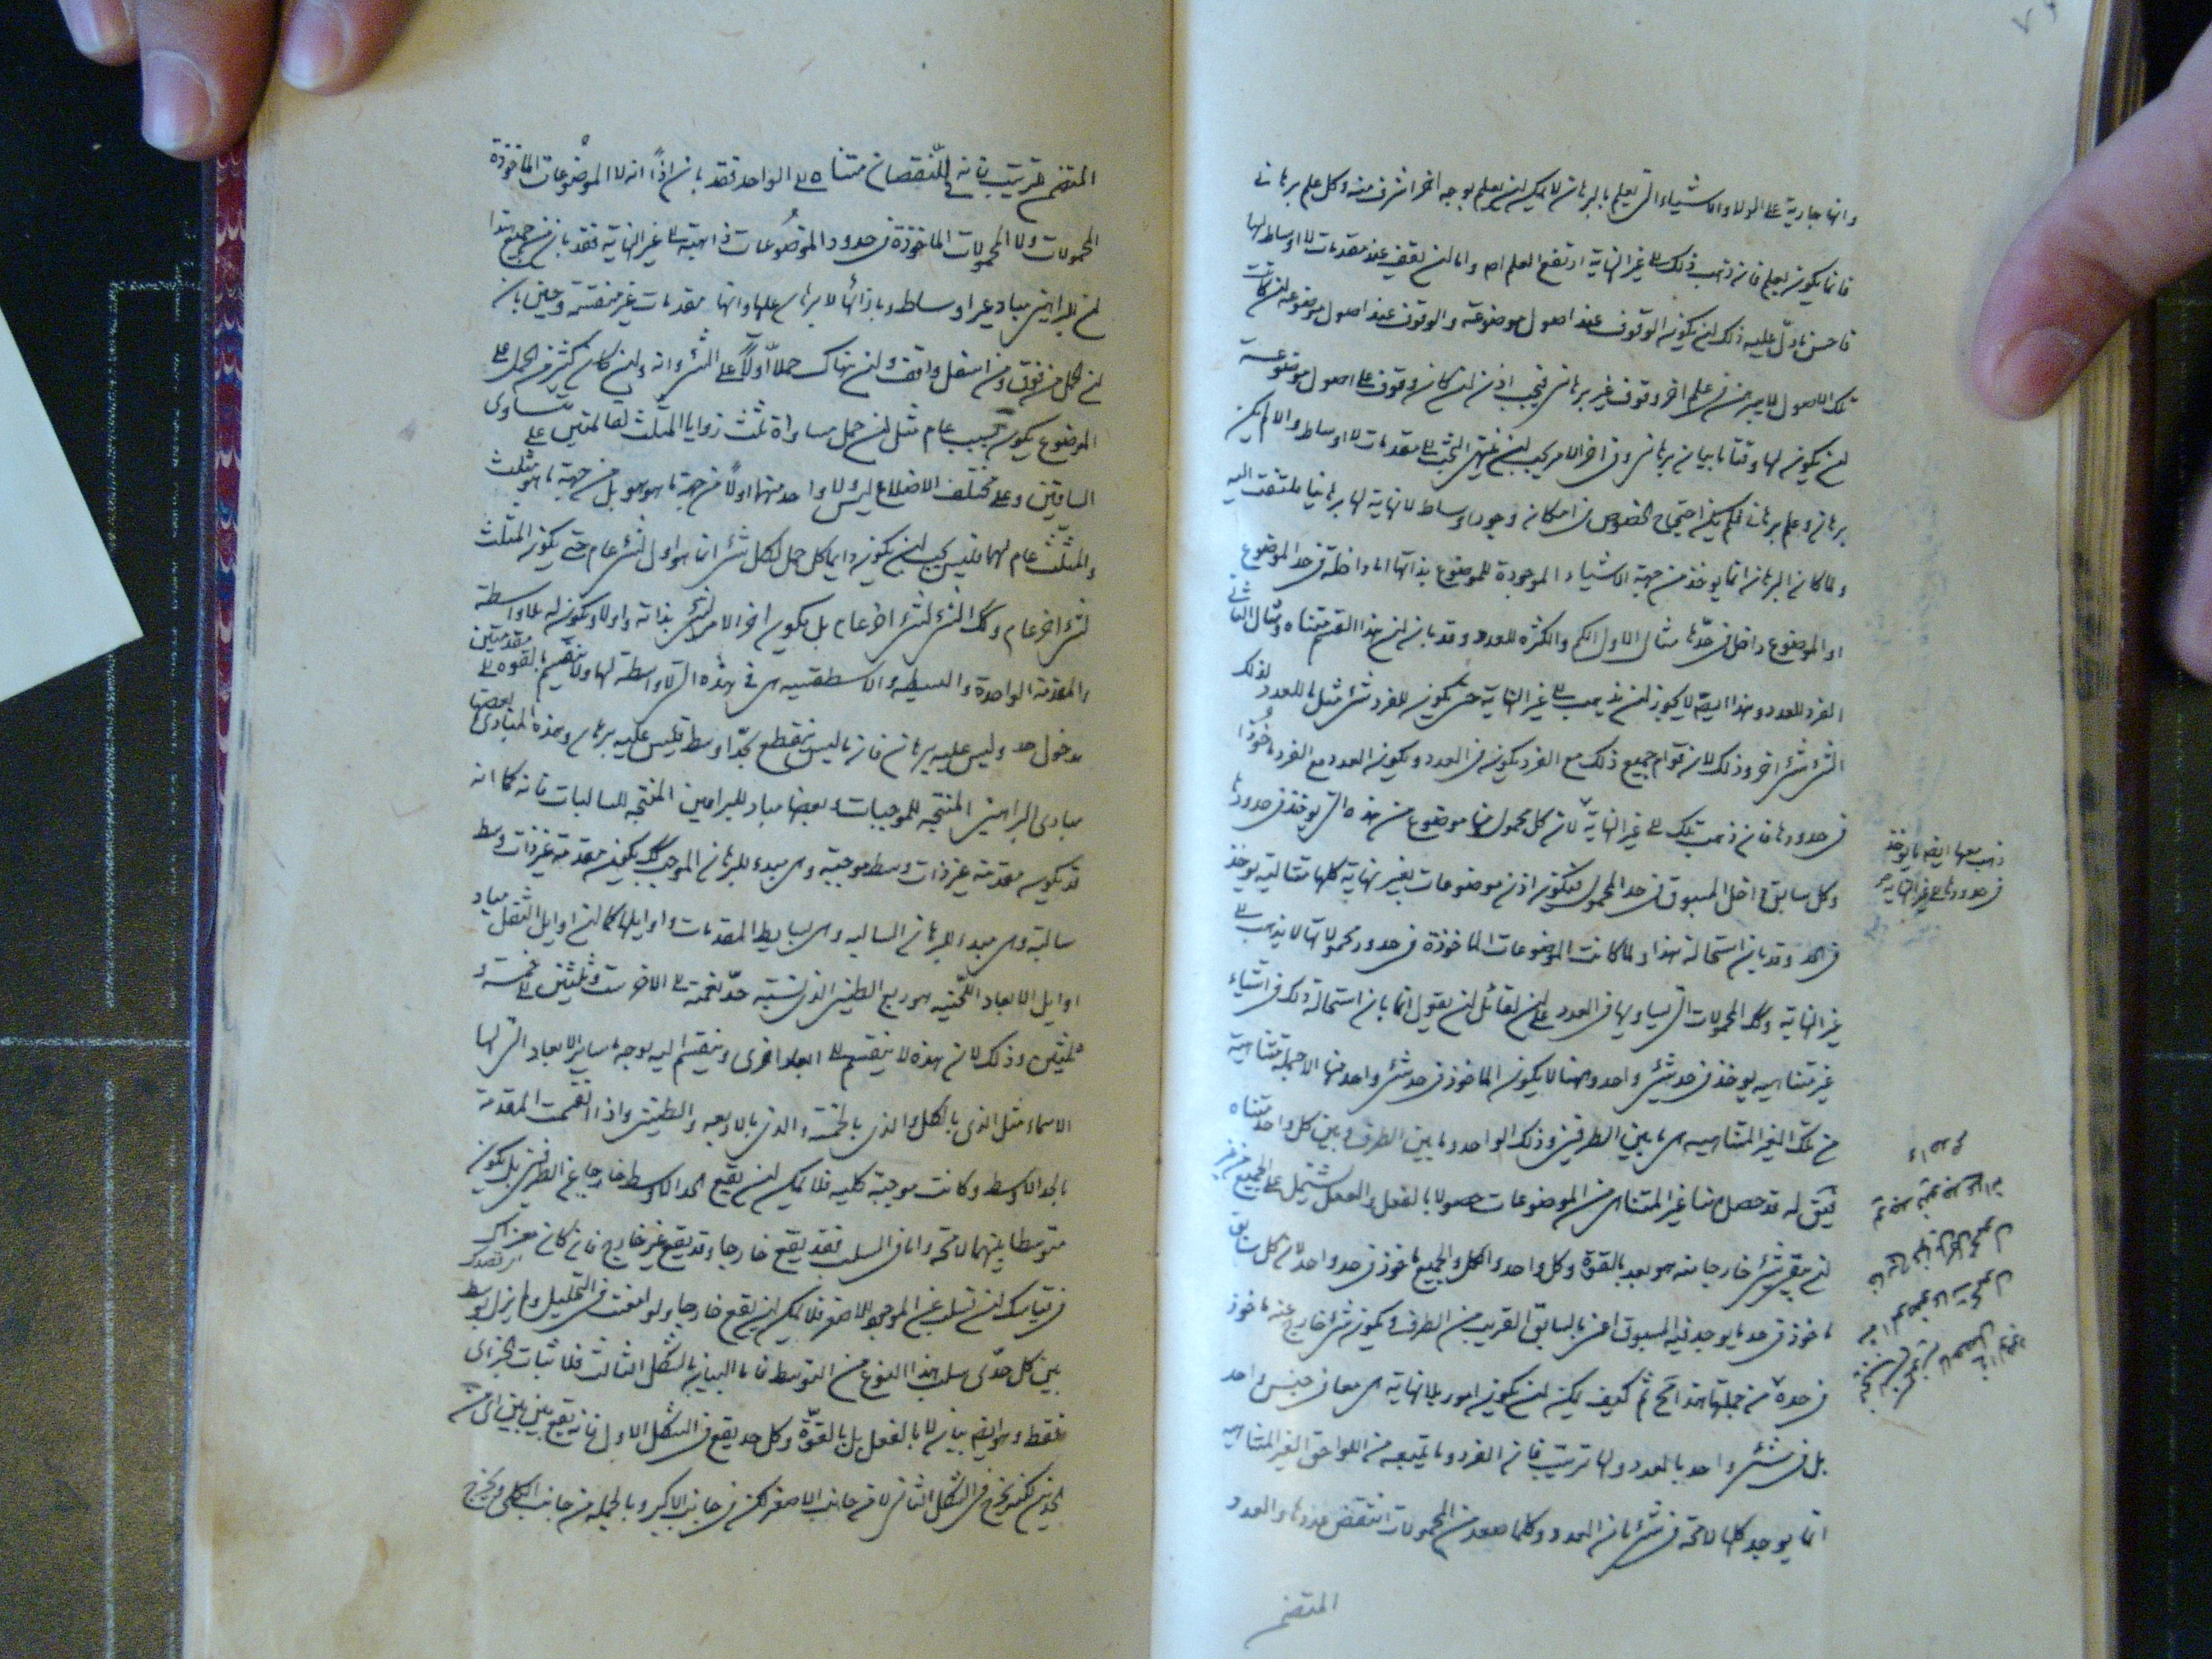 وانها جارية على الولاء والاشياء التى يعلم بالبرهان لا يمكن ان يعلم بوجه اخر اشرف منه وكل علم برهانى
فانما يكون بعلم فان ذهب ذلك الى غير النهاية ارتفع العلم اه واما ان تقف عند مقدمات لا اوساط لها
فاحسن ما دل عليه ذلك ان يكون الوقوف عند اصول موضوعة والوقوف عند اصول موضوعة ان كانت
تلك الاصول لا يبرهن فى علم اخر وقوف غير برهانى فيجب اذن ان كان وقوف على اصول موضوعة
ان يكون لها وقتا ما بيان برهانى وفى اخر الامر يجب ان ينتهى البحث الى مقدمات لا اوساط والا لم يكن
برهان وعلم برهانى فلم يكن احتجاج الخصوص فى امكان وجود اوساط لا نهاية لها برهانيا ملتفت اليه
ولما كان البرهان انما يوخذ من جهة الاشياء الموجودة للموضوع بذاتها اما داخلة فى حد الموضوع
او الموضوع داخل فى حدها مثال الاول الكم والكثرة للعدد وقد بان ان هذا القسم متناه ومثال الثانى
الفرد للعدد وهذا ايضا لا يجوز ان يذهب الى غير النهاية حتى يكون للفرد شئ مثل ما للعدد ولذلك
الشئ شئ اخر وذلك لان قوام جميع ذلك مع الفرد يكون فى العدد ويكون العدد مع الفرد ماخوذا
فى حدودها فان ذهب تلك الى غير النهاية لان كل محمول منها موضوع من هذه التى يوخذ فى حدودها
ذهب معها ايضا ما يوخذ
فى حدودها الى غير النهاية
وكل سابق داخل المسبوق فى حد المحمول فيكون اذن موضوعات بغير نهاية كلها متتالية يوخذ
فى الحد وقد بان استحالة هذا ولما كانت الموضوعات الماخوذة فى حدود محمولاتها لا يذهب الى
غير النهاية وكك المحمولات التى يساويها فى العدد على ان لقائل ان يقول انما بان استحالة ذلك فى اشياء
غير متناهية يوخذ فى حد شئ واحد وههنا لا يكون الماخوذ فى حد شئ واحد منها الا جملة متناهية
من تلك الغير المتناهية هى ما بين الطرفين وذلك الواحد وما بين الطرف وبين كل واحد متناه
فيق له قد حصل منا غير المتناهى من الموضوعات حصولا بالفعل والفعل يشتمل على الجميع من غير
ان يبقى شئ خارجا منه هو بعد بالقوة وكل واحد والكل والجميع ماخوذ فى حد واحد لان كل سابق
ماخوذ فى حد ما يوجد فيه المسبوق اعنى بالسابق القريب من الطرف ويكون شئ خارج عنه ماخوذ
فى حده من جملتها هذا مح ثم كيف يمكن ان يكون امور بلا نهاية هى معا فى جنس واحد
بل فى شئ واحد بالعدد ولها ترتيب فان الفرد وما يتبعه من اللواحق الغير المتناهية
انما يوجد كلها لاحقة فى شئ ما من العدد وكلما صعد من المحمولات انتقض عددها والعدد
المتضم
المتضم لترتيب فانه فى النقصان متناه الى الواحد فقد بان اذا انه لا الموضوعات الماخوذة
المحمولات ولا المحمولات الماخوذة فى حدود الموضوعات ذاهبة الى غير النهاية فقد بان من جميع هذا
ان للبراهين مباد بغير اوساط وبازائها لا برهان عليها وانها مقدمات غير منقسمة وحين بان
ان الحمل من فوق ومن اسفل واقف وان هناك حملا اولا على الشئ وانه وان كان كثير من الحمل على
الموضوع يكون بسبب عام مثل ان حمل مساواة ثلث زوايا المثلث لقائمتين على متساوى
الساقين وعلى مختلف الاضلاع ليس ولا واحد منهما اولا من جهة ما هو هو بل من جهة ما هو مثلث
والمثلث عام لهما فليس يجب ان يكون دايما كل حمل لكل شئ انما هو اول لشئ عام حتى يكون المثلث
لشئ اخر عام وكك الشئ لشئ اخر عام بل يكون اخر الامر لشئ بذاته واولا ويكون له بلا واسطة
والمقدمة الواحدة والبسيطة والاسطقسية هى فى هذه التى لا واسطة لها ولا تنقسم بالقوة الى مقدمتين
بدخول حد وليس عليه برهان فان ما ليس ينقطع بحد اوسط فليس عليه برهان وهذه المبادى بعضها
مبادى البراهين المنتجة للموجبات وبعضها مباد للبراهين المنتجة للسالبات فانه كما انه
قد يكون مقدمة غير ذات وسط موجبة وهى مبدء للبرهان الموجب كك يكون مقدمة غير ذات وسط
سالبة وهى مبدء للبرهان السالبه وهى بسايط المقدمات واوايلها كما ان اوايل الثقل مباد
اوايل الابعاد اللحنيه هو ربع الطنينى الذى نسبته حد نغمته الى الاخر ست وثلثين الى خمسة و
ثلثين وذلك لان هذه لا ينقسم الى ابعاد اخرى وينقسم اليه بوجه ما ساير الابعاد التى لها
الاسماء مثل الذى بالكل والذى بالخمسة والذى بالاربعه والطنينى واذا انقسمت المقدمة
بالحد الاوسط وكانت موجبة كليه فلا يمكن ان يقع الحد الاوسط خارجا عن الطرفين بل يكون
متوسطا بينهما لا محة واما فى السلب فقد يقع خارجا وقد يقع غير خارج فان كان
فى قياسك ان تسلب عن الموجب للاصغر فلا يمكن ان يقع خارجا ولو امعنت فى التحليل ولم يزل يوسط
بين كل حدى سلب هذا النوع من التوسط فاما البيان بالشكل الثالث فلاثبات الجزئى
فقط وهو ايضا بيان لا بالفعل بل بالقوة وكل حد يقع فى الشكل الاول فانه يقع بين بين اى من
الحدين لكنه يخرج فى الشكل الثانى لا من جانب الاصغر لكن فى جانب الاكبر وبالجمله من جانب الكلى ويخرج